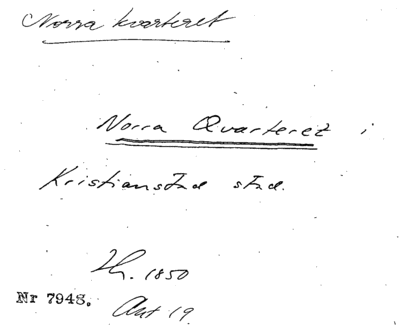 Norra kvarteret
Norra Qvarteret i
Kristianstad stad.
Th. 1850
Nr 7948.
Ant 19